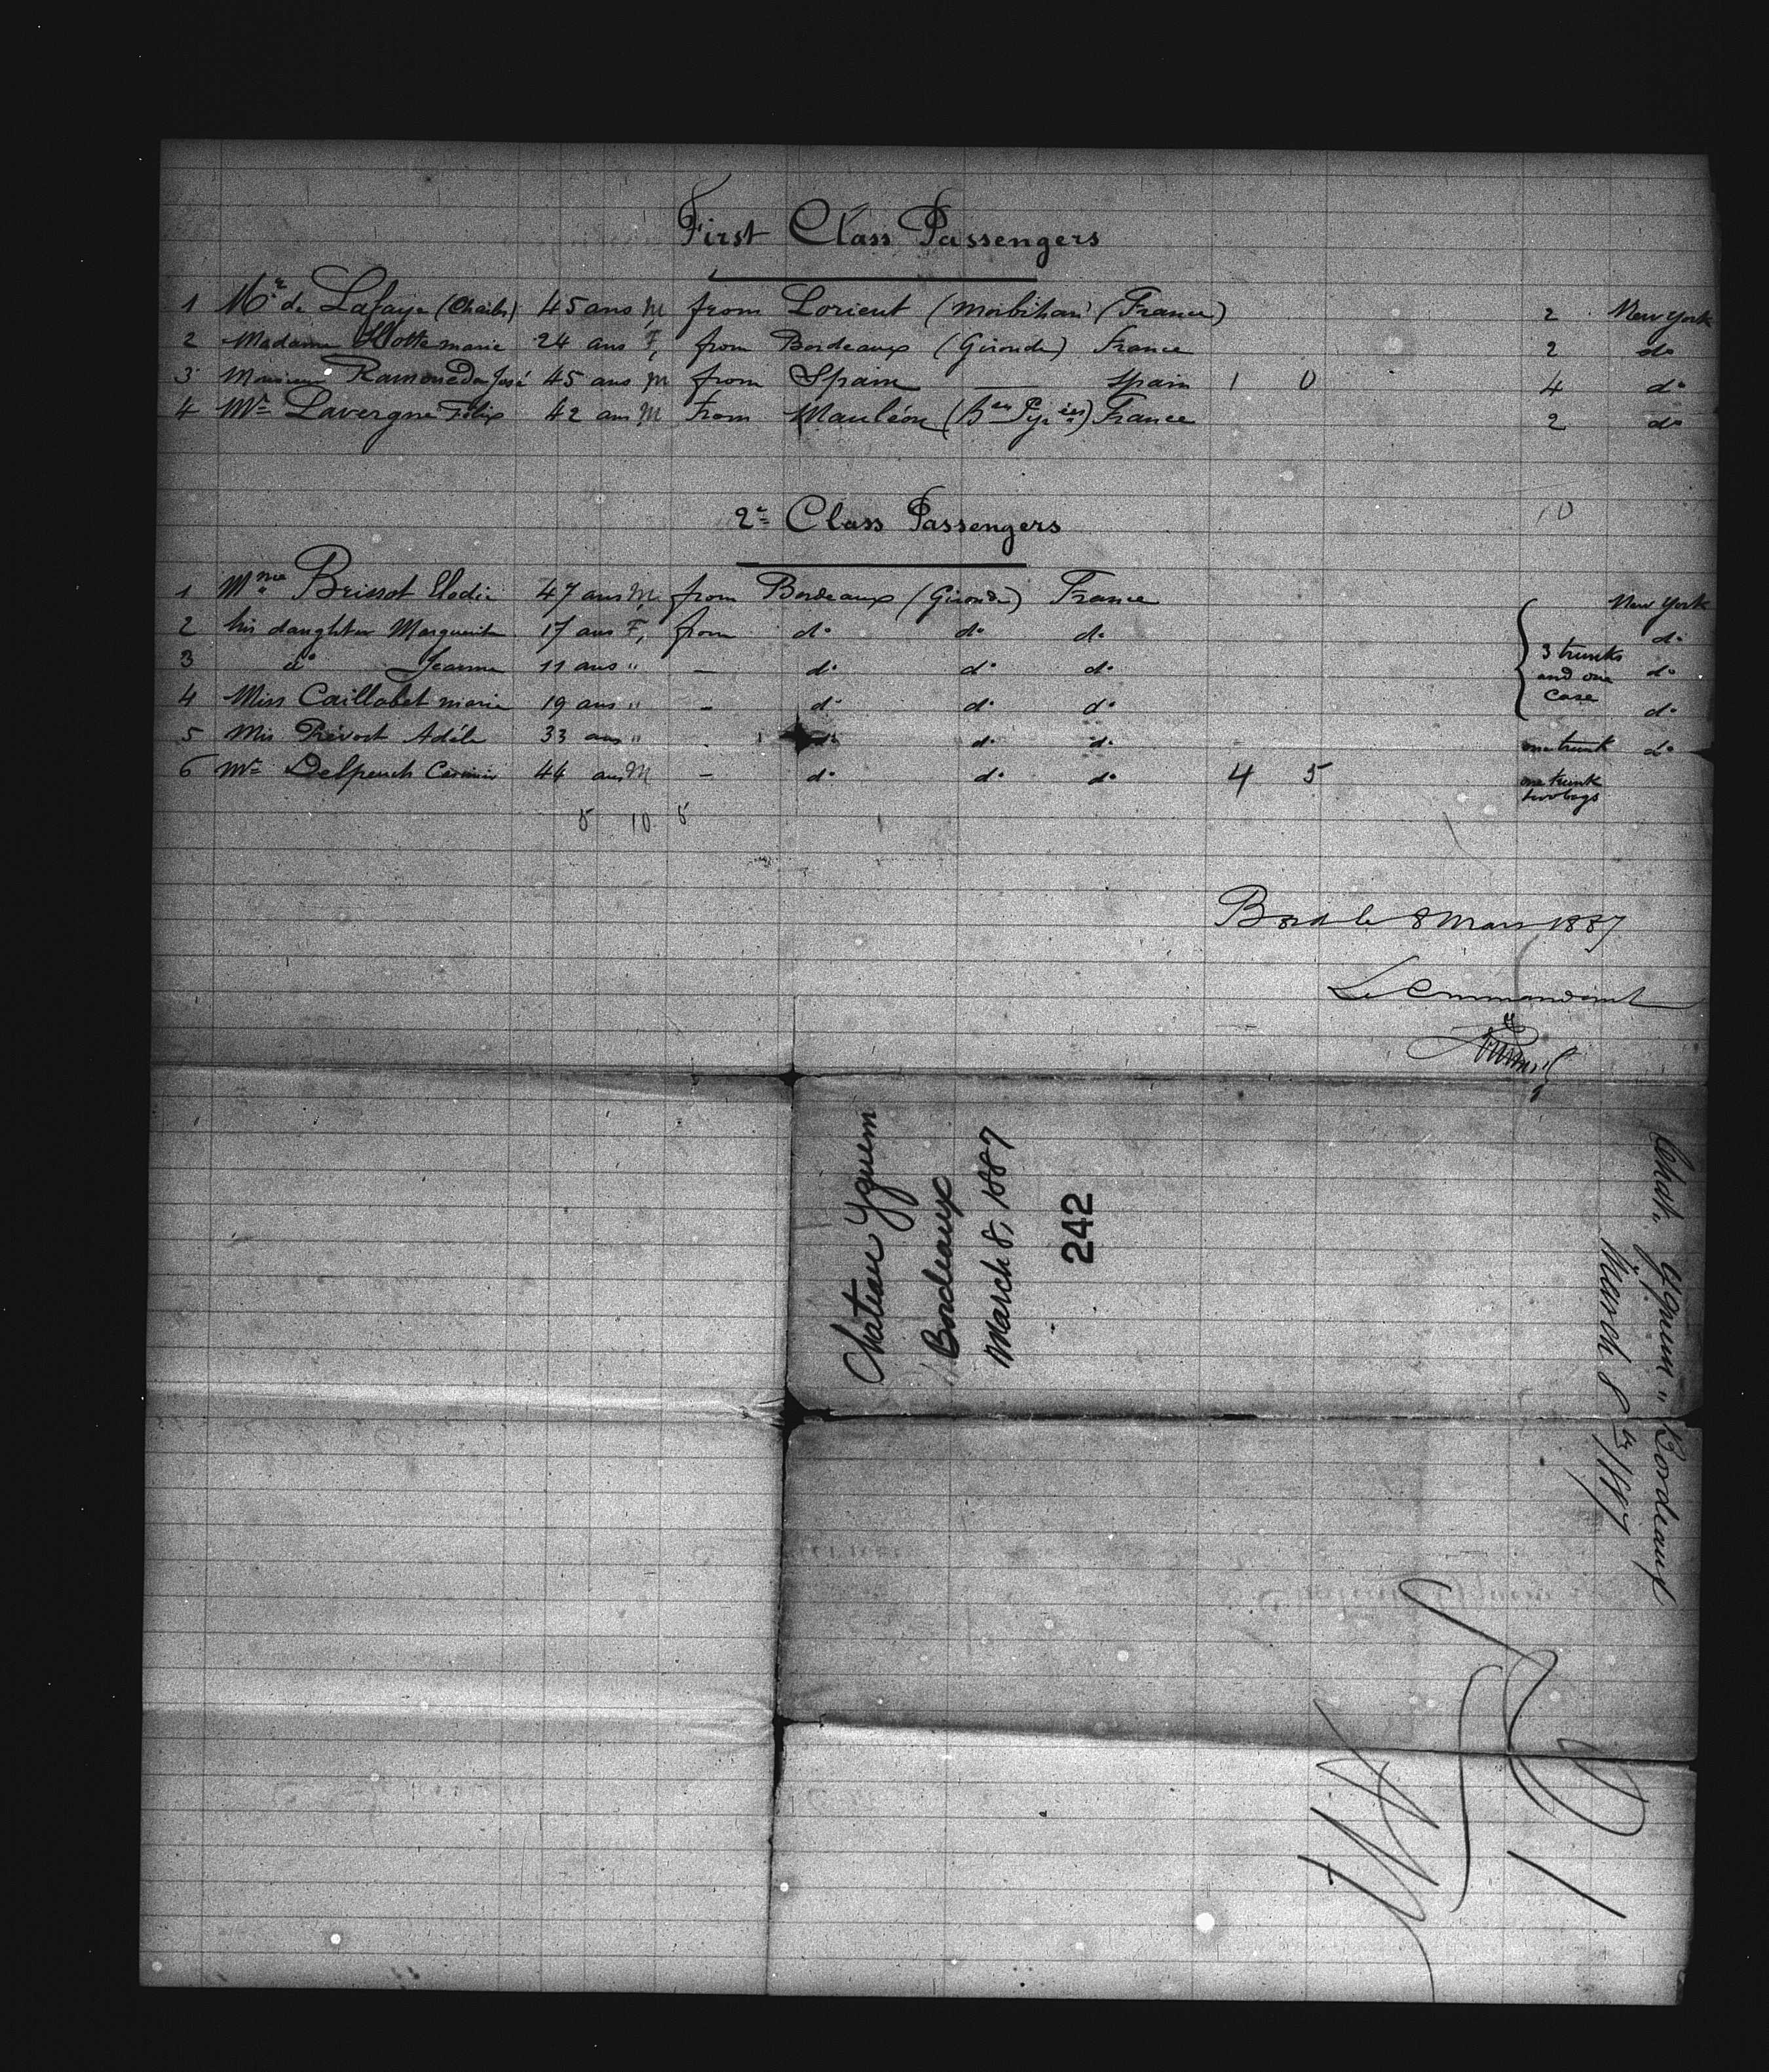 First Class Passengers
1 Mr. de Lafaye (Charles) 45 ans M from Lorient (Morbihan) (France) 2 New York
2 Madame Hotte marie 24 ans F, from Bordeaux (Gironde) France 2 do
3 Monsieur Ramoneda José 45 ans M from Spain — Spain 1 0 4 do
4 Mr Lavergne Félix 42 ans M From Mauléon (Bses Pyrées) France 2 do
10
2e Class Passengers
1 Mme Brissot Elodie 47 ans M from Bordeaux (Gironde) France New York
2 his daughter Marguerite 17 ans F, from do do do do
3 do Jeanne 11 ans " — do do do 3 trunks and one case do
4 Miss Caillabet marie 19 ans " – do do do do
5 Mis Prévost Adèle 33 ans " do do do one trunk do
6 Mr Delpeuch Casimir 44 ans M – do do do 4 5 one trunk two bags
5 10 5
Bord le 8 Mars 1887
Le Commandant
Chateau Yquem
Bordeaux
March 8, 1887
242
Chat. Yquem " Bordeaux
March 8th/1887